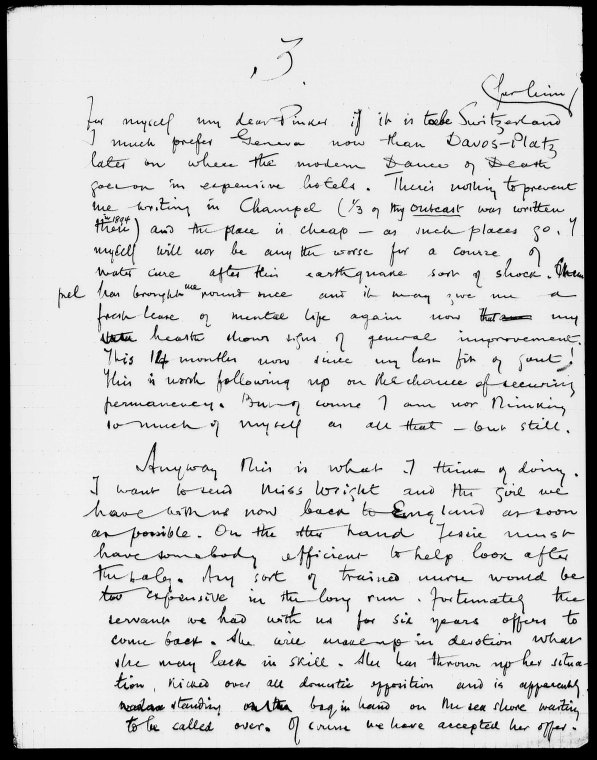 3.
For myself my dear Pinker if it is to be Switzerland
I much prefer Geneva now than Davos-Platz
later on where the modern Dance of Death
goes on in expensive hotels. There's nothing to prevent
me writing in Champel (1/3 of the Outcast was written
there in 1894) and the place is cheap – as such places go. I
myself will not be any the worse for a course of
water cure after this earthquake sort of shock. Cham
pel has brought me round once and it may give me a
fresh lease of mental life again now that my
health shows signs of general improvement.
This 14 months now since my last fit of gout!
This is worth following up on the chance of securing
permanency. But of course I am not thinking
so much of myself as all that – but still.
Anyway this is what I think of doing.
I want to send Miss Wright and the girl we
have with us now back to England as soon
as possible. On the other hand Jessie must
have somebody efficient to help look after
the baby. Any sort of trained nurse would be
too expensive in the long run. Fortunately the
servant we had with us for six years offers to
come back. She will make up in devotion what
she may lack in skill. She has thrown up her situa-
tion, kicked over all domestic opposition and is apparently
standing bag in hand on the sea shore waiting
to be called over. Of course we have accepted her offer.